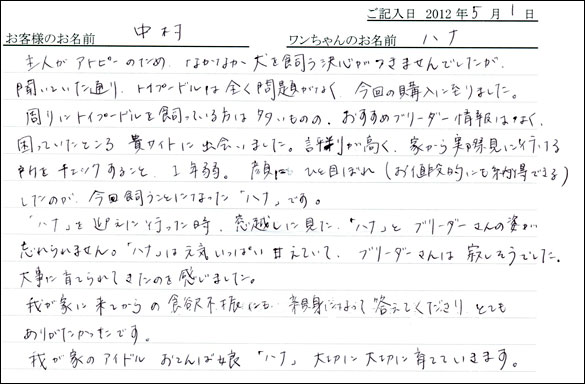 ご記入日 2012年5月1日
お客様のお名前 中村 ワンちゃんのお名前 ハナ
主人がアトピーのため、なかなか犬を飼う決心がつきませんでしたが、
聞いていた通り、トイプードルは全く問題がなく、今回の購入に至りました。
周りにトイプードルを飼っている方は多いものの、おすすめブリーダー情報はなく、
困っていたところ 貴サイトに出会いました。評判が高く、家から実際見に行ける
所をチェックすること、1年弱。顔に ひと目ぼれ(お値段的にも納得できる)
したのが、今回飼うことになった「ハナ」です。
「ハナ」を迎えに行った時、窓越しに見た、「ハナ」とブリーダーさんの姿が
忘れられません。「ハナ」は元気いっぱい甘えていて、ブリーダーさんは寂しそうでした。
大事に育てられてきたのを感じました。
我が家に来てからの食欲不振にも、親身になって答えてくださり とても
ありがたかったです。
我が家のアイドル おてんば娘 「ハナ」 大切に大切に育てていきます。